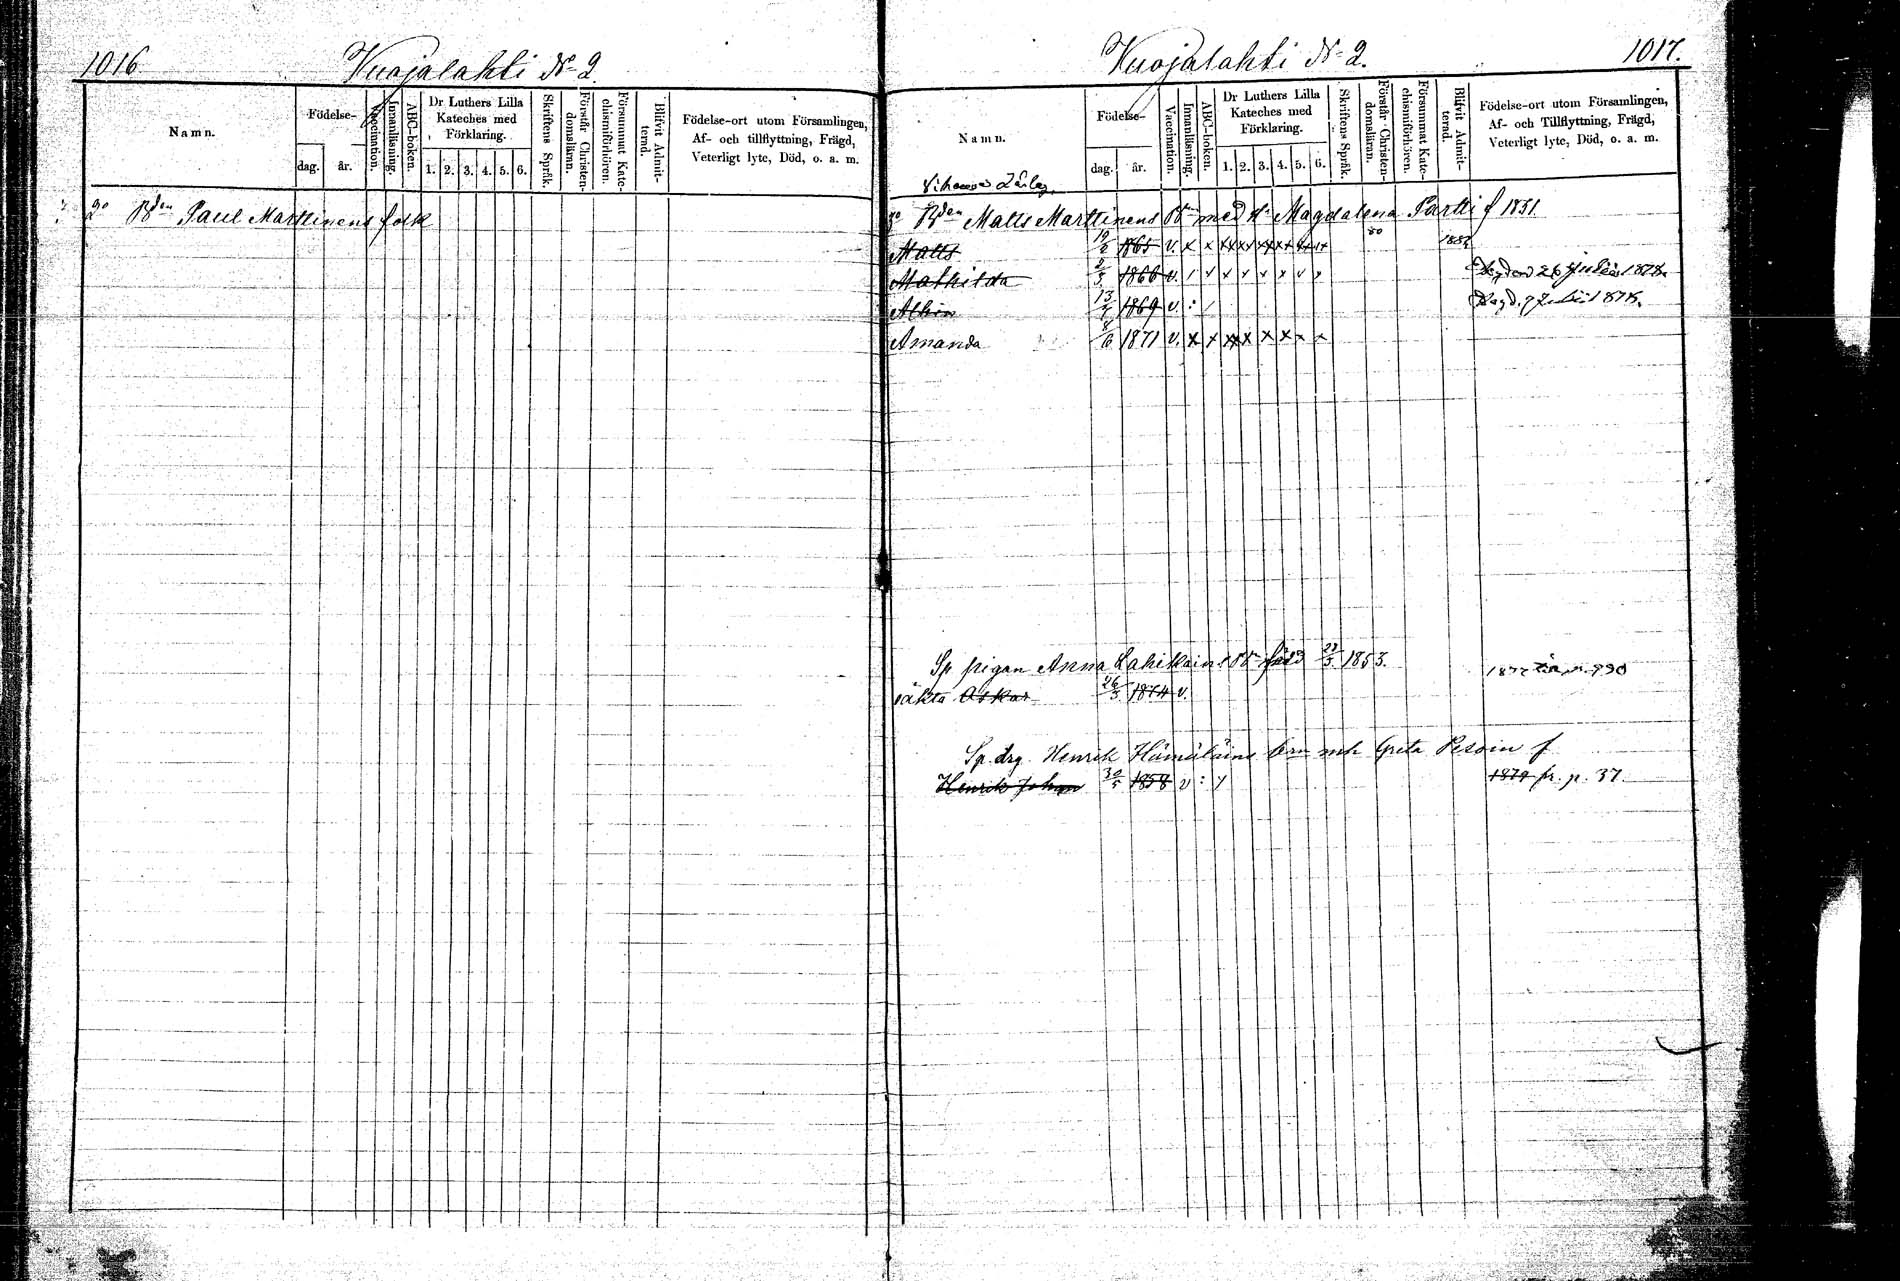 1016.
Vuojalahti No 2.
Namn.
Födelse-
dag.
år.
Vaccination.
Innanläsning.
ABC-boken.
Dr Luthers Lilla Kateches med Förklaring.
1. 2. 3. 4. 5. 6.
Skriftens Språk.
Förstår Christendomsläran.
Försummat Katechismiförhören.
Blifvit Admitterad.
Födelse-ort utom Församlingen,
Af- och tillflyttning, Frägd,
Veterligt lyte, Död, o. a. m.
2o Bden Paul Marttinens folk
Vuojalahti No 2.
1017.
Namn.
Födelse-
dag.
år.
Vaccination.
Innanläsning.
ABC-boken.
Dr Luthers Lilla Kateches med Förklaring.
1. 2. 3. 4. 5. 6.
Skriftens Språk.
Förstår Christendomsläran.
Försummat Katechismiförhören.
Blifvit Admitterad.
Födelse-ort utom Församlingen,
Af- och Tillflyttning, Frägd,
Veterligt lyte, Död, o. a. m.
3o Bden Matts Marttinens med Magdalena Partti f 1831.
Matts 1865 v. x x xx xx xx x x x+ 80 1882
Mathilda 2/3 1866 v. 1878
13/7 1869 v. :
Amanda 8/6 1871 v. x x xx x x x x x
Sp pigan Anna Lahikain född 23/5 1853. 1877 p. 930
oäkta Oskar 26/3 1874 v.
Sp. drg. Henrik Hämäläins Greta Pesoin f
Henrik Johan 30/5 1858 v : 1879 fr. p. 37.